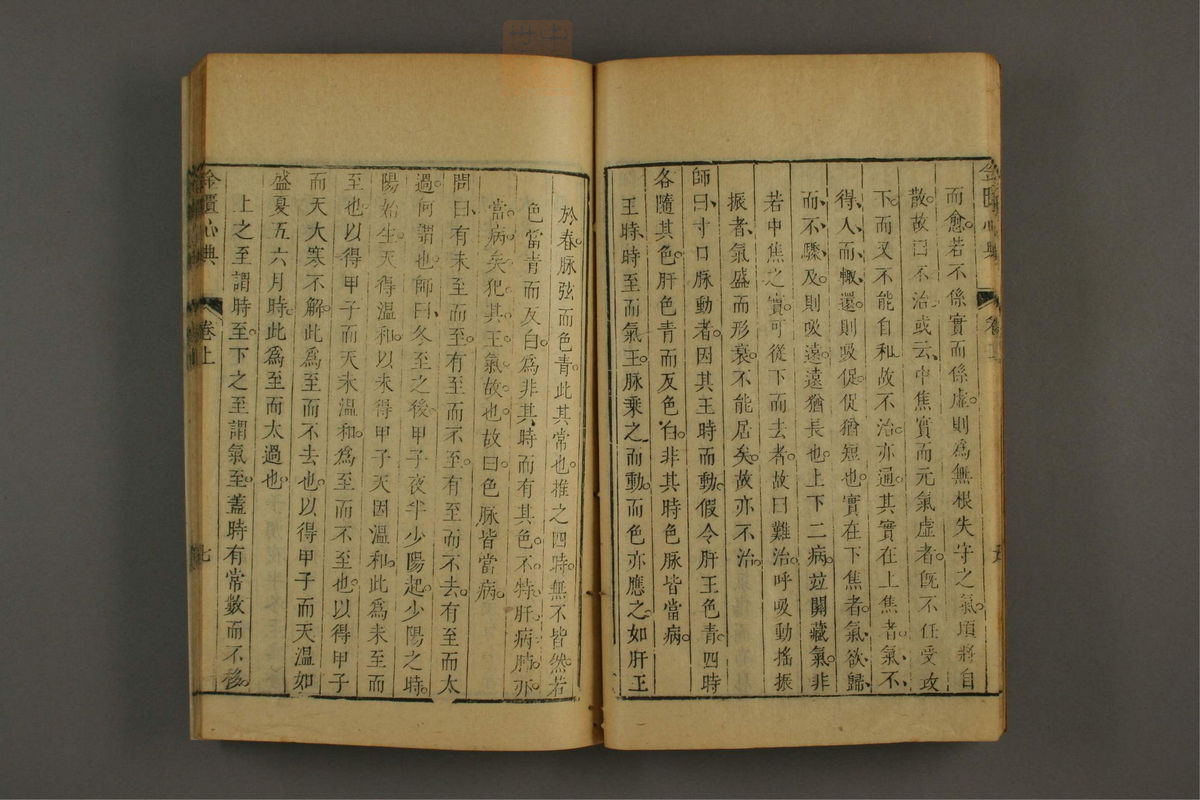 而愈若不係實而係虛則爲無根失守之氣頃將自
散故曰不治或云中焦實而元氣虛者旣不任受攻
下而又不能自和故不治亦通其實在上焦者氣不
得入而輙還則吸促促猶短也實在下焦者氣欲歸
而不驟及則吸遠遠猶長也上下二病竝關藏氣非
若中焦之實可從下而去者故曰難治呼吸動搖振
振者氣盛而形衰不能居矣故亦不治
師曰寸口脉動者因其王時而動假令肝王色青四時
各隨其色肝色青而反色白非其時色脉皆當病
王時時至而氣王脉乘之而動而色亦應之如肝王
於春脉弦而色青此其常也推之四時無不皆然若
色當青而反白爲非其時而有其色不特肝病肺亦
當病矣犯其王氣故也故曰色脉皆當病
問曰有未至而至有至而不至有至而不去有至而太
過何謂也師曰冬至之後甲子夜半少陽起少陽之時
陽始生天得溫和以未得甲子天因溫和此爲未至而
至也以得甲子而天未溫和爲至而不至也以得甲子
而天大寒不解此爲至而不去也以得甲子而天溫如
盛夏五六月時此爲至而太過也
上之至謂時至下之至謂氣至葢時有常數而不移
金匱心典
卷上
七